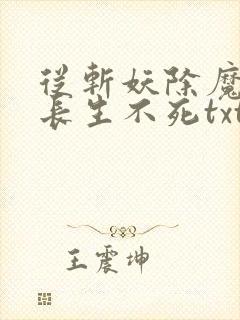 從斬妖除魔
長生不死txt
王震坤